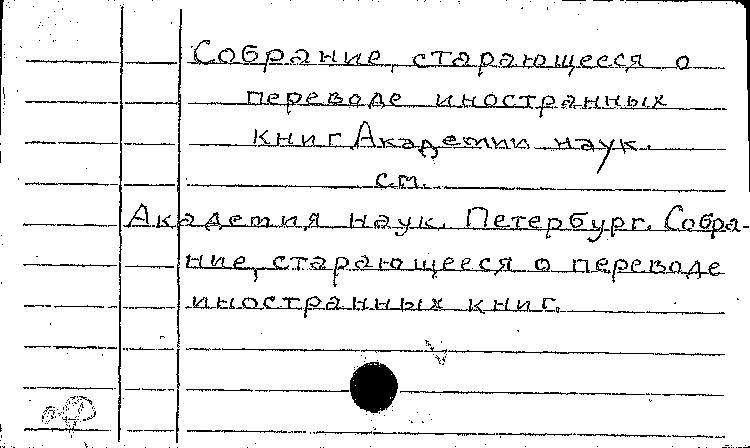 Собрание, старающееся о
переводе иностранных
книг Академии наук.
см.
Академия наук. Петербург. Собра-
ние, старающееся о переводе
иностранных книг.